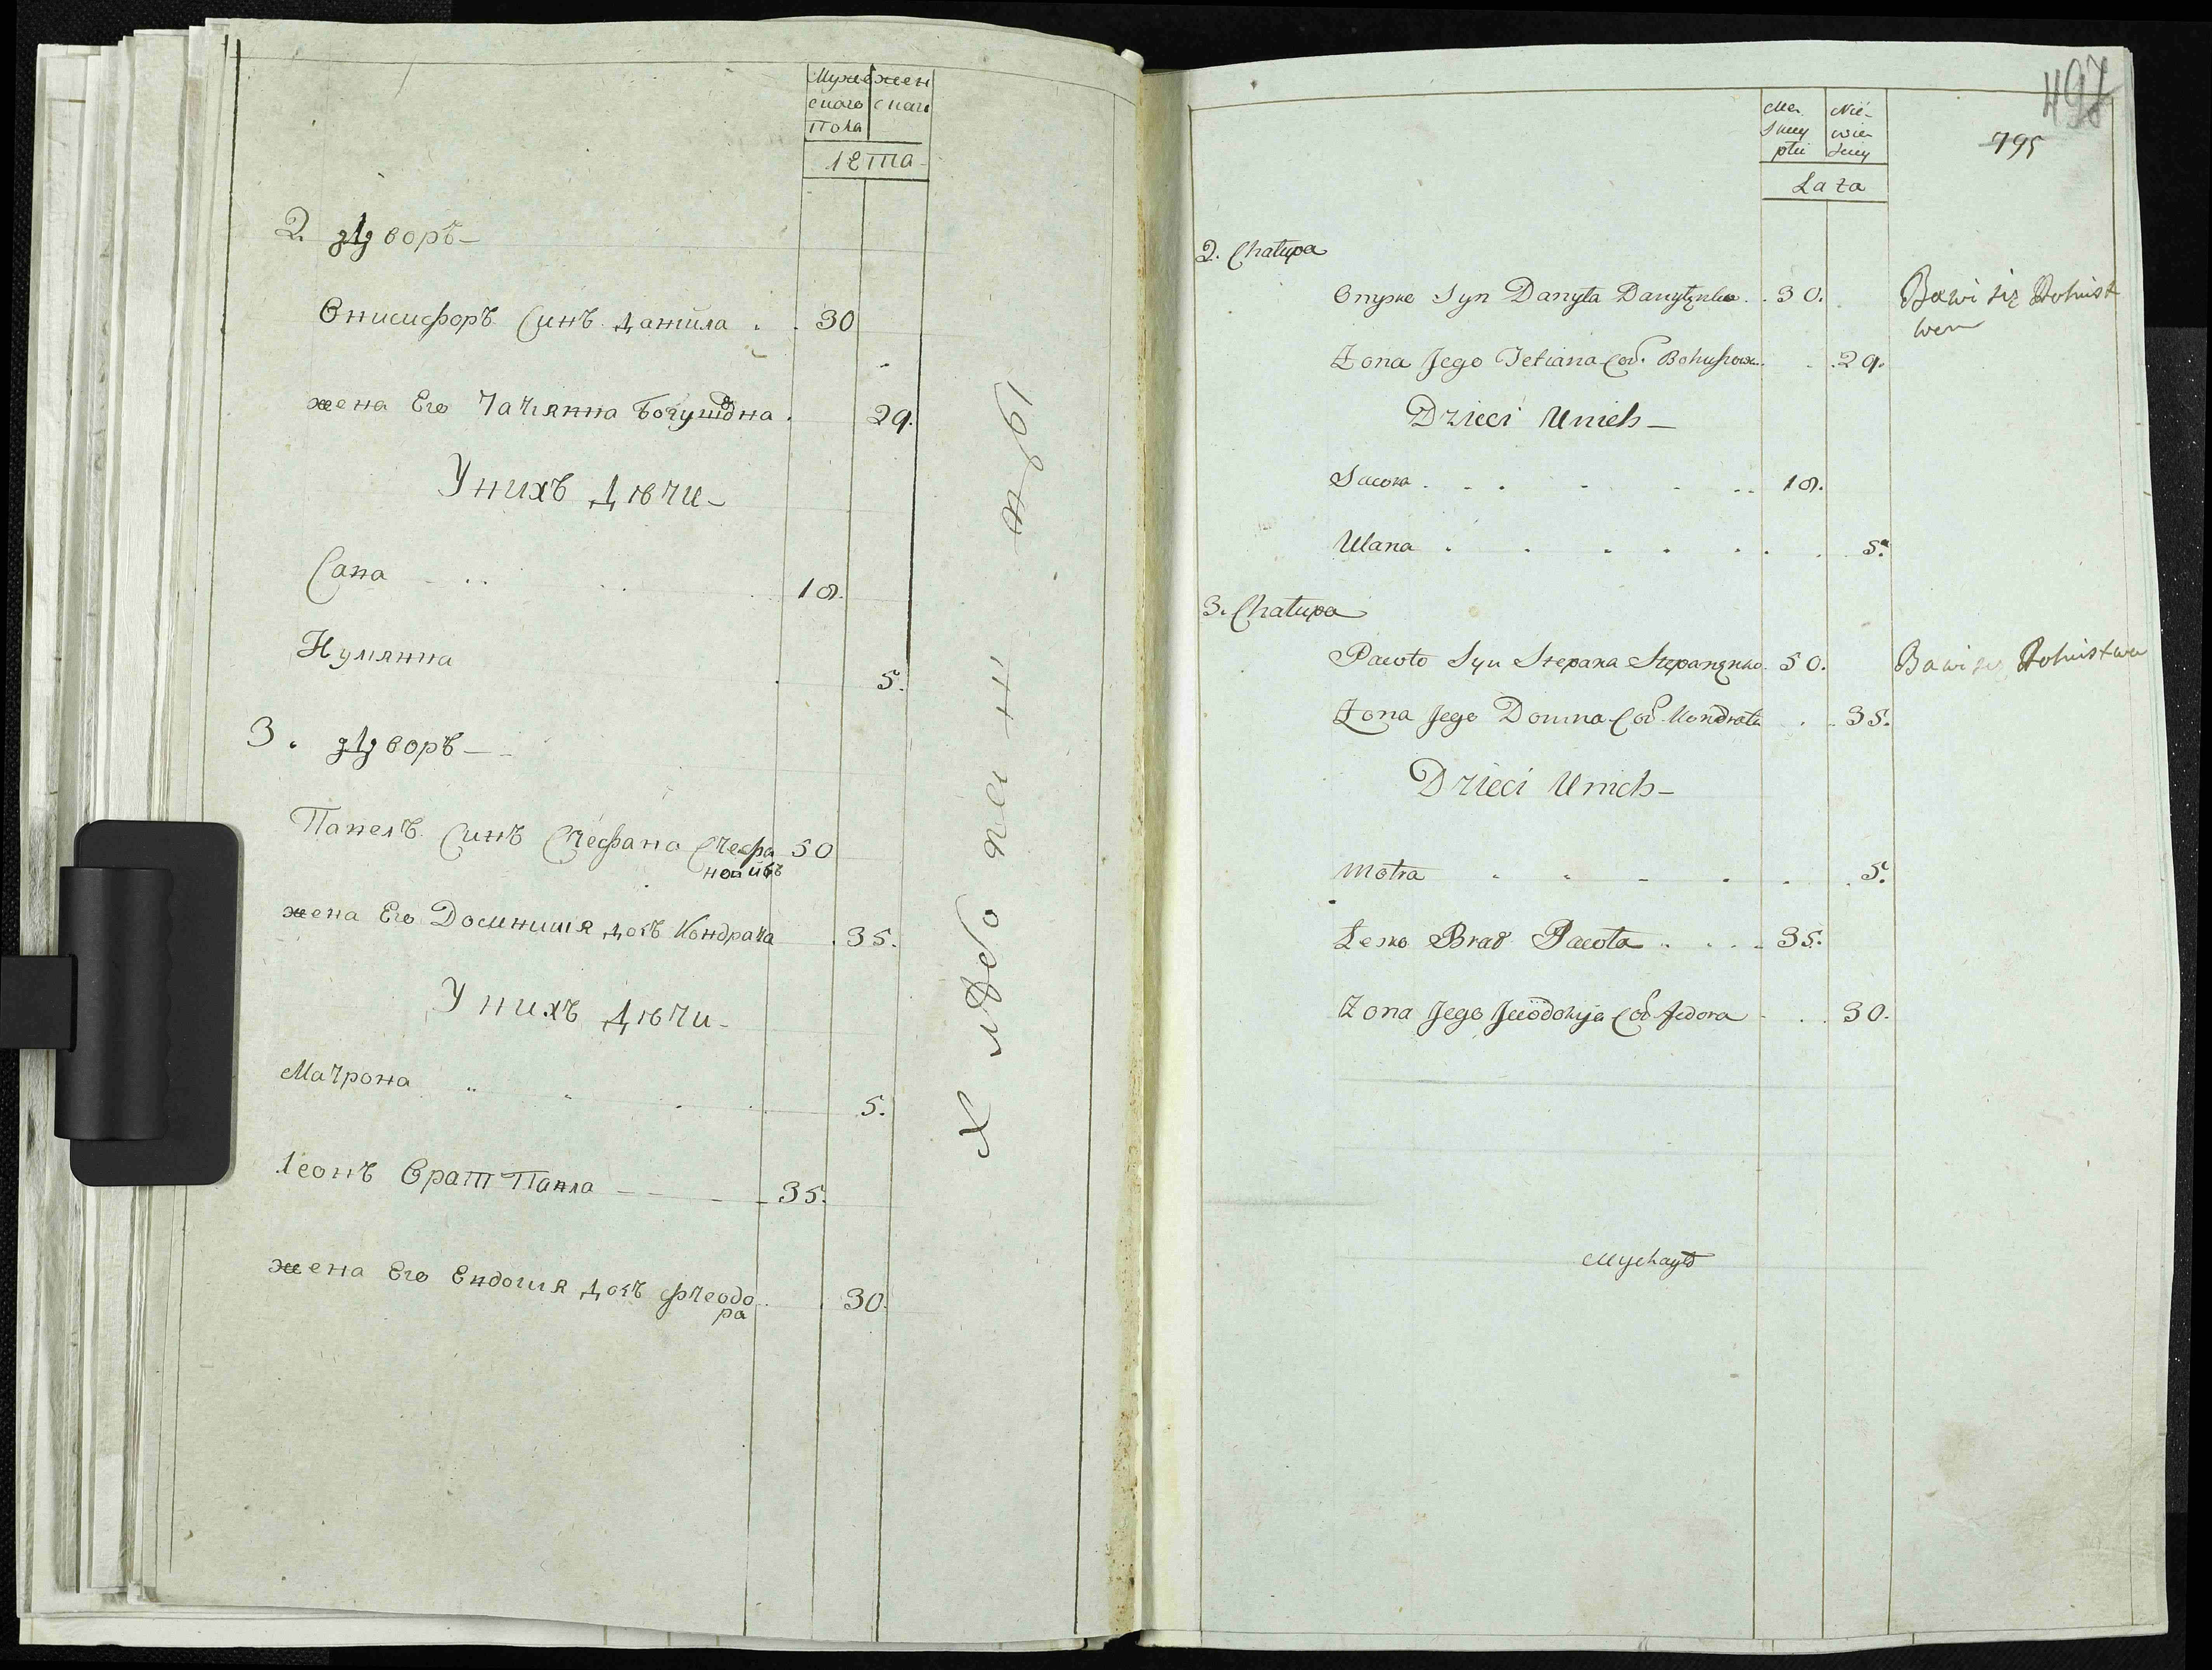 Мужеского Пола
женского
лѣта
2. дворъ
Онисифоръ Синъ Данила . . 30
жена Его Татiанна Богушовна . 29.
У нихъ дѣти
Сава . . 18.
Иулянна 5.
3. дворъ
Павелъ Синъ Стефана Стефа 50
новичъ
жена Его Домникiя дочь Кондрата . 35.
У нихъ дѣти
Матрона 5.
Леонъ Братъ Павла 35.
жена Его Евдокiя дочь Фтеодо 30.
ра
Хлѣбопашцы
497
795
Męskiey płci
Niewieściey
Lata
2. Chałupa
Onyśko Syn Danyła Danyłenko . 30. Bawi się Rolnict
wem
Żona Jego Tetiana Cor. Bohuszowa . . 29.
Dzieci Unich
Sawka . . . 18.
Ulana . . . . . . 5.
3. Chałupa
Pawło Syn Stepana Stepanenko 50. Bawi się Rolnictwem
Żona Jego Domna Cor Kondrata . . 35.
Dzieci Unich
Motra 5.
Lesko Brat Pawła . . . 35.
Żona Jego Jewdokija Cor Fedora . . 30.
Mychayło